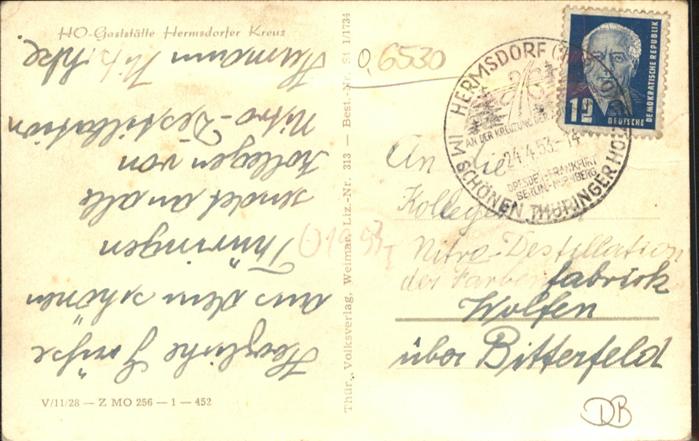 HO-Gaststätte Hermsdorfer Kreuz
Herzliche Grüße
aus dem schönen
Thüringen
sendet an alle
Kollegen von
Nitro-Destillation
Hermann
V/11/28 — Z MO 256 — 1 — 452
Thür. Volksverlag, Weimar. Liz.-Nr. 313 — Best.-Nr. St 1/1734
0,6530
HERMSDORF
AN DER KREUZUNG DER
24.4.53-14
DRESDEN-FRANKFURT
BERLIN-NÜRNBERG
IM SCHÖNEN THÜRINGER HOLZ
12
DEUTSCHE
DEMOKRATISCHE REPUBLIK
An die
Kollegen
Nitro-Destillation
der Farbenfabrick
Wolfen
über Bitterfeld
DB